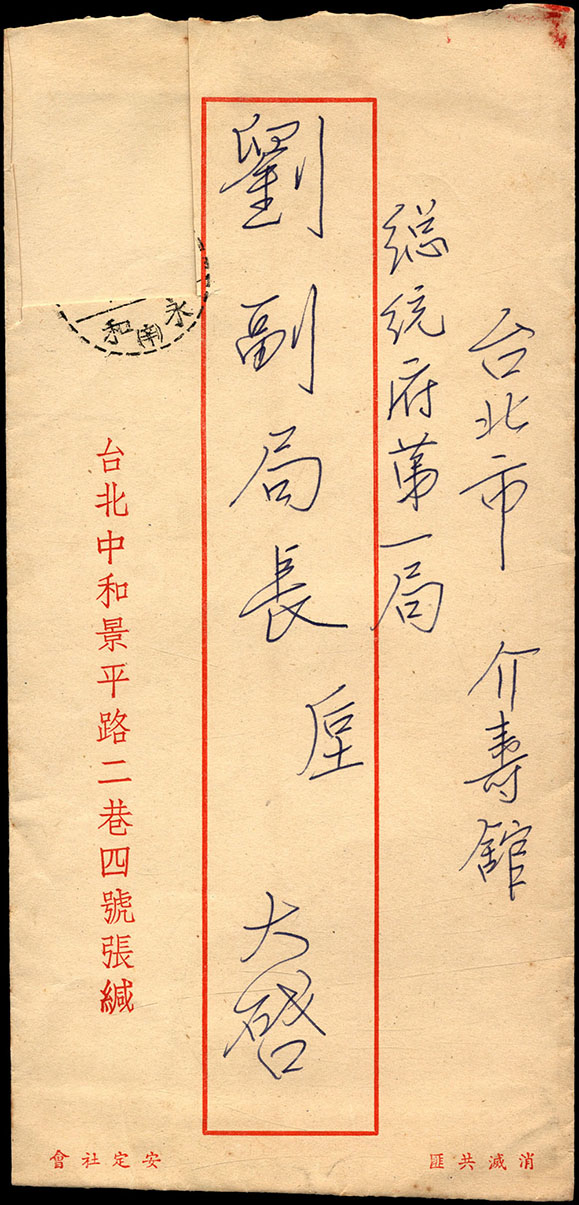 台北市 介壽館
總統府第一局
劉副局長 垕 大啓
台北中和景平路二巷四號張緘
永和
(南)
消滅共匪
安定社會